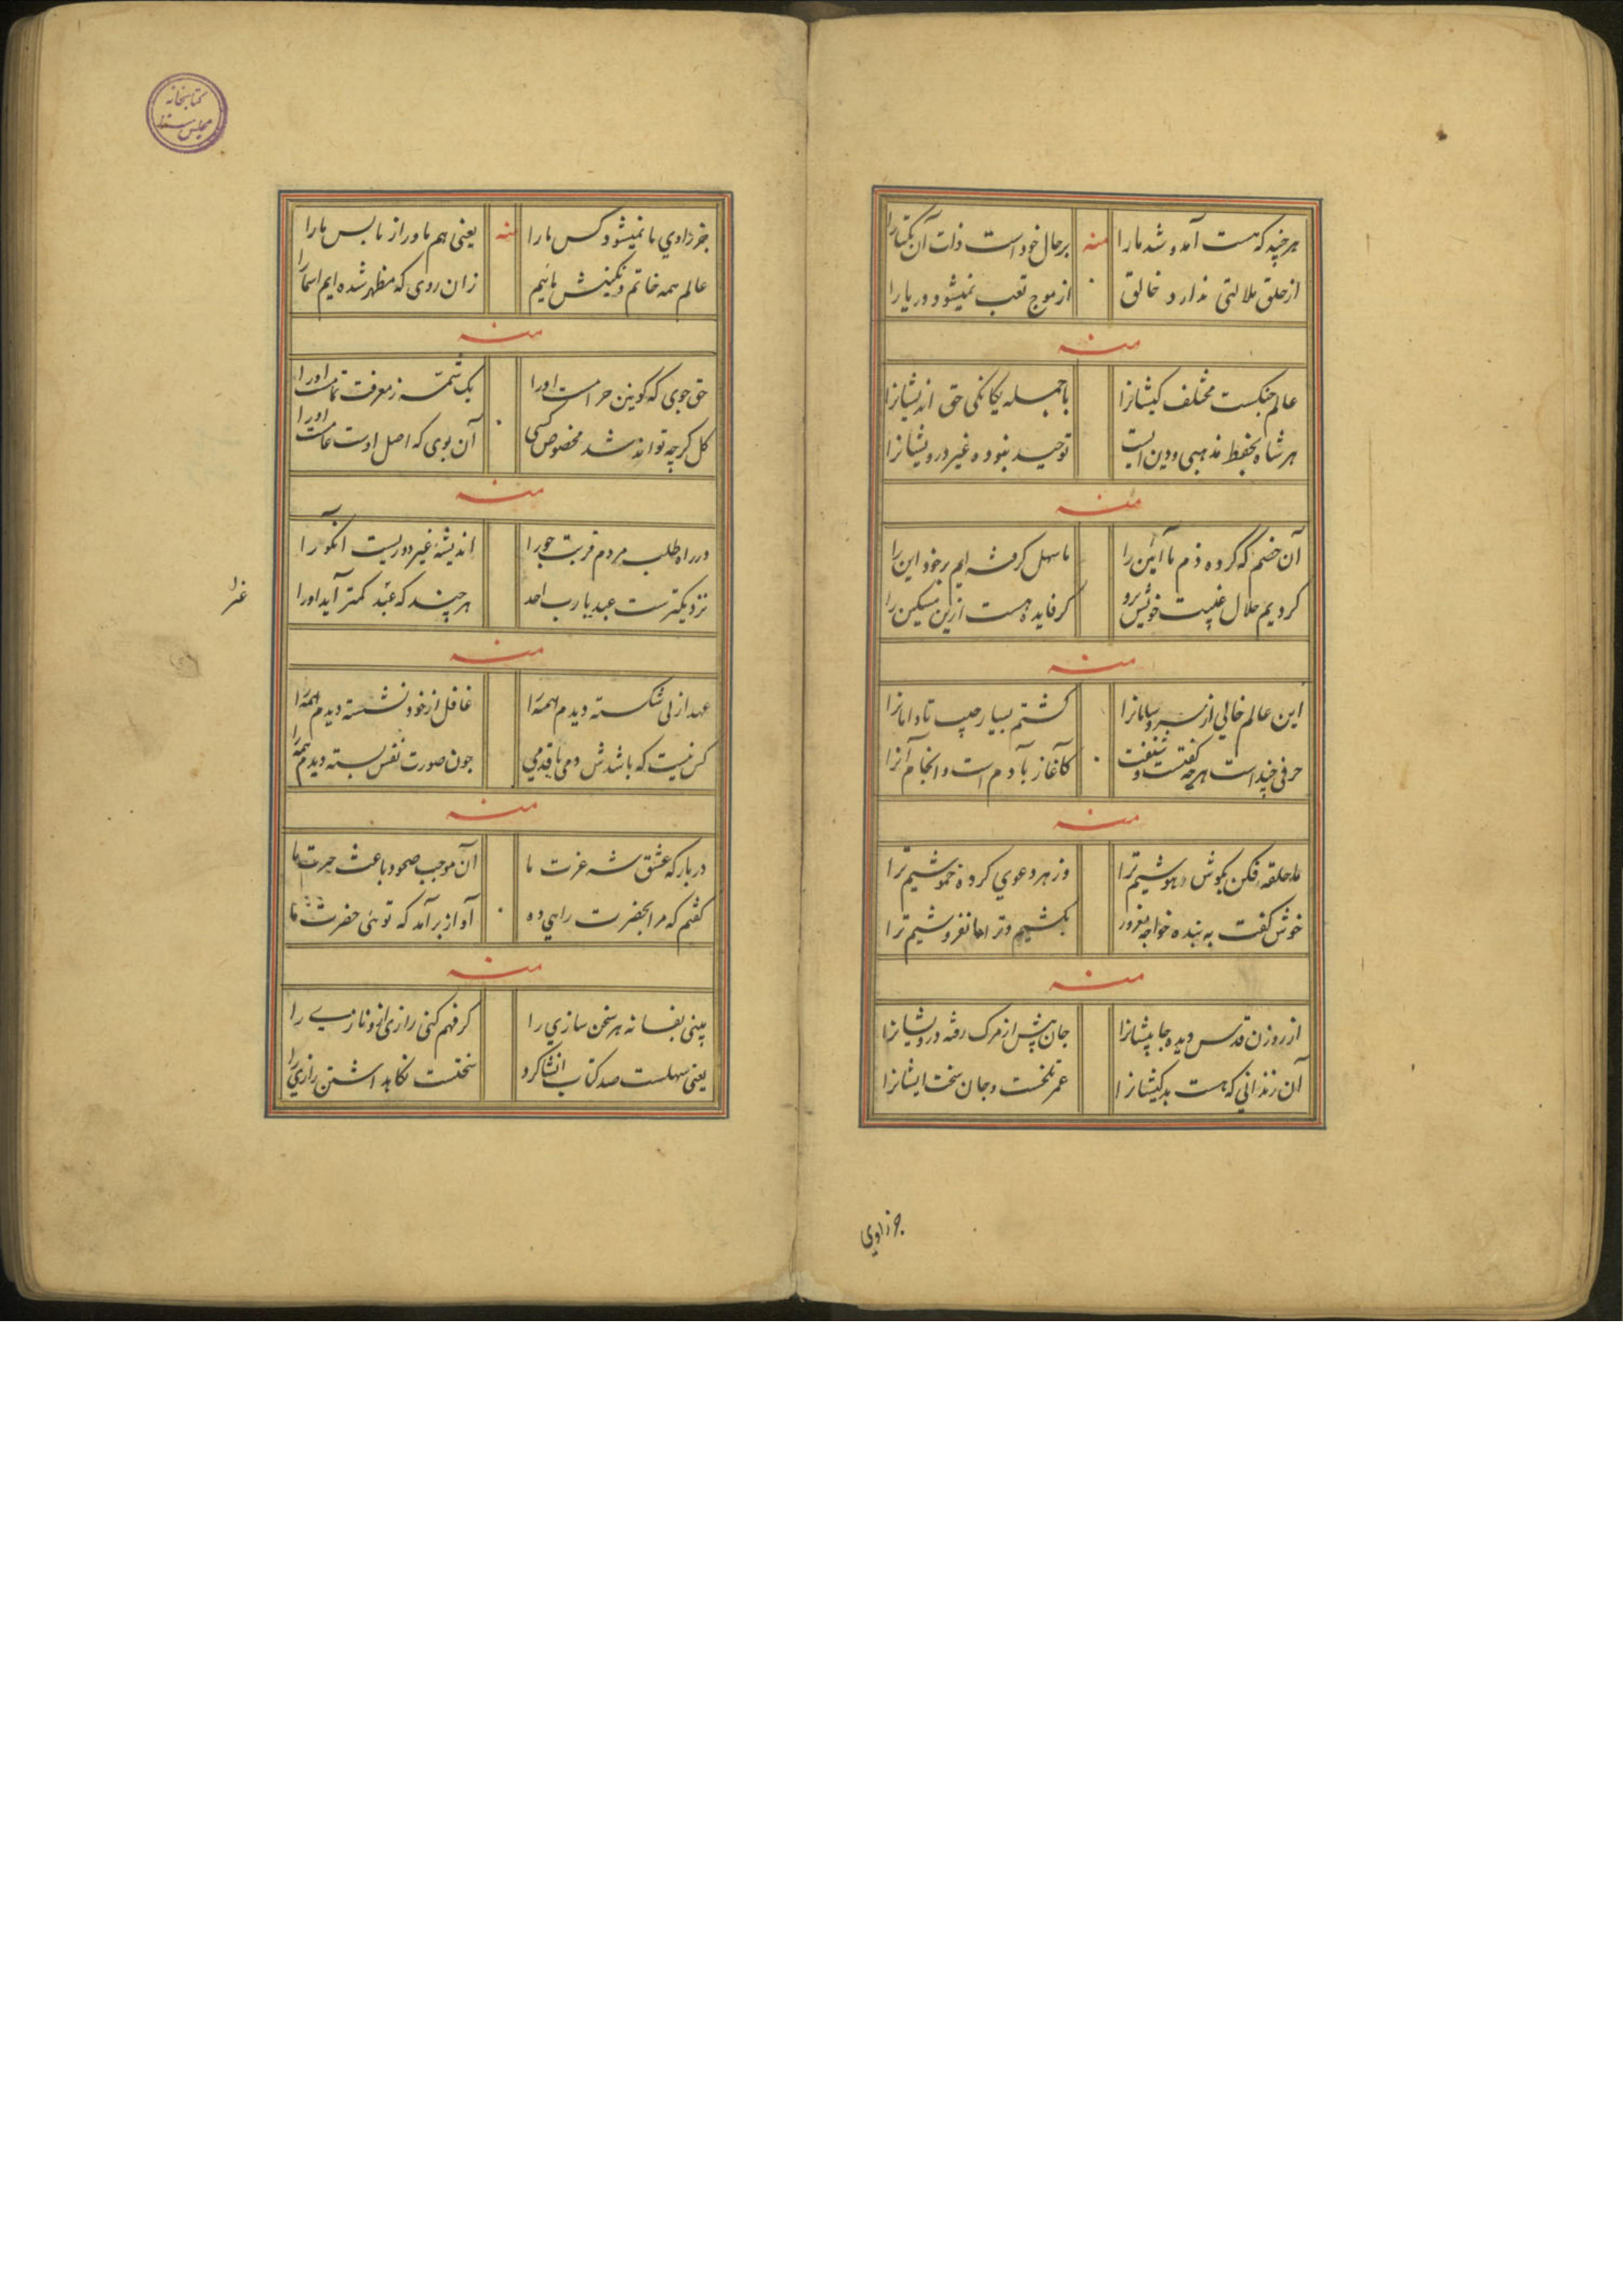 هرچند که هست آمد و شد ما را منه بر حال خود است ذات آن یکتا را
از خلق ملالتی ندارد خالق از موج تعب نمیشود دریا را
منه
عالم جنکست مختلف کیشانرا با جمله یکانکی حق اندیشانرا
هر شاه بحفظ مذهبی و دین است توحید نبوده غیر درویشانرا
منه
آن خصم که کرده ذم ما آئین را ما سهل کرفته ایم بر خود این را
کردیم حلال غیبت خویش برو کر فایده هست ازین مسکین را
منه
این عالم خالی از سر و سامانرا کشتم بسیار جیب تا دامانرا
حرفی چند است هرچه کفتست و شنفت کآغاز بآدم است و انجام آنرا
منه
ما حلقه فکن بکوش و هوشیم ترا وز هر دعوی کرده خموشیم ترا
خوش کفت به بنده خواجه مغرور بکشیم و ترا اما نفروشیم ترا
منه
از روزن قدس دیده جا پیشانرا جان پیش از مرک رفته درویشانرا
آن زندانی که هست بد کیشانرا عمر تلخست و جان سخت ایشانرا
جز زادی
جز زادی ما نمیشود کس ما را منه یعنی هم ما و راز ما بس ما را
عالم همه خاتم و نکینش مائیم زان روی که مظهر شده ایم اسما را
منه
حق جوی که کونین حرامست او را یک شمه ز معرفت تمامست او را
کل کرچه تواند شد مخصوص کسی آن بوی که اصل اوست عامست او را
منه
در راه طلب مردم قربت جو را اندیشهٔ غیر دوریست آنکو را
نزدیکترست عبد یا رب احد هرچند که عبد کمتر آید او را
منه
عهد ازلی شکسته دیدم همه را غافل از خود نشسته دیدم همه را
کس نیست که باشدش دمی با قدمی چون صورت نفس بسته دیدم همه را
منه
دربارکه عشق شه عزت ما آن موجب صحو و باعث حیرت ما
کفتم که مرا بحضرت راهی ده آواز برآمد که توئی حضرت ما
منه
بینی بفسانه هر سخن سازی را کر فهم کنی رازی و نازی را
یعنی سهلست صد کتاب انشا کرد سختست نکاهداشتن رازی را
کتابخانه
مجلس سنا